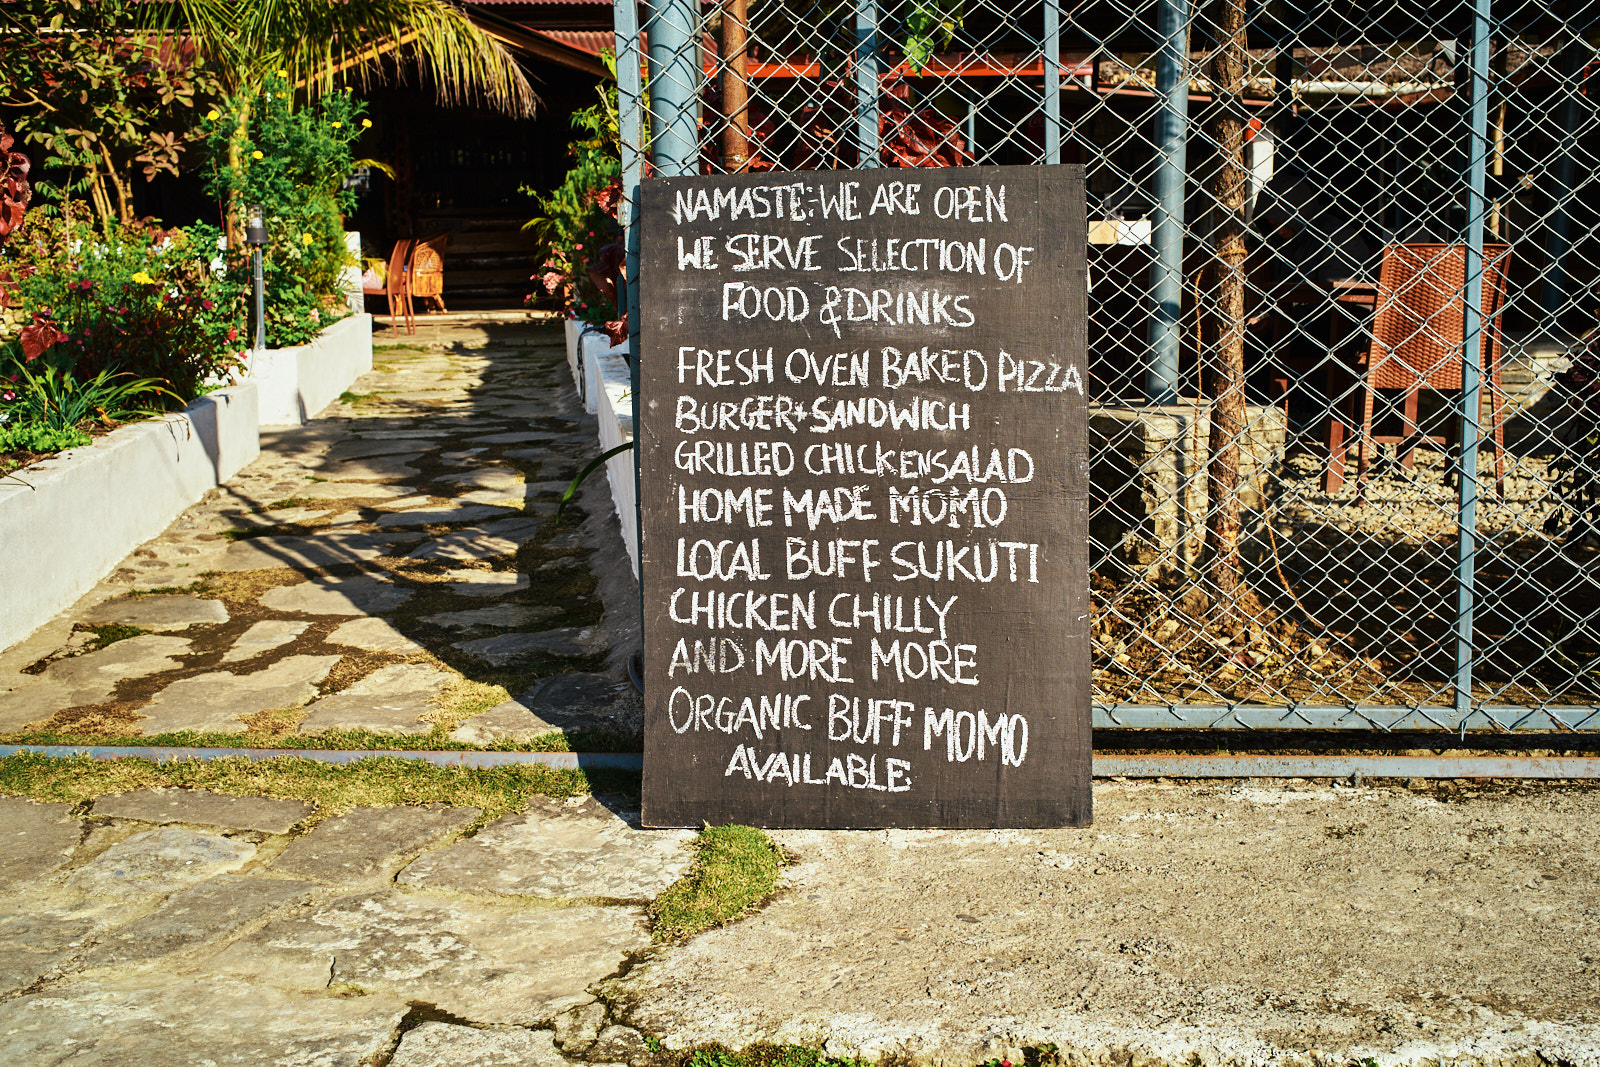 NAMASTE:-WE ARE OPEN
WE SERVE SELECTION OF
FOOD & DRINKS
FRESH OVEN BAKED PIZZA
BURGER+SANDWICH
GRILLED CHICKEN SALAD
HOME MADE MOMO
LOCAL BUFF SUKUTI
CHICKEN CHILLY
AND MORE MORE
ORGANIC BUFF MOMO
AVAILABLE